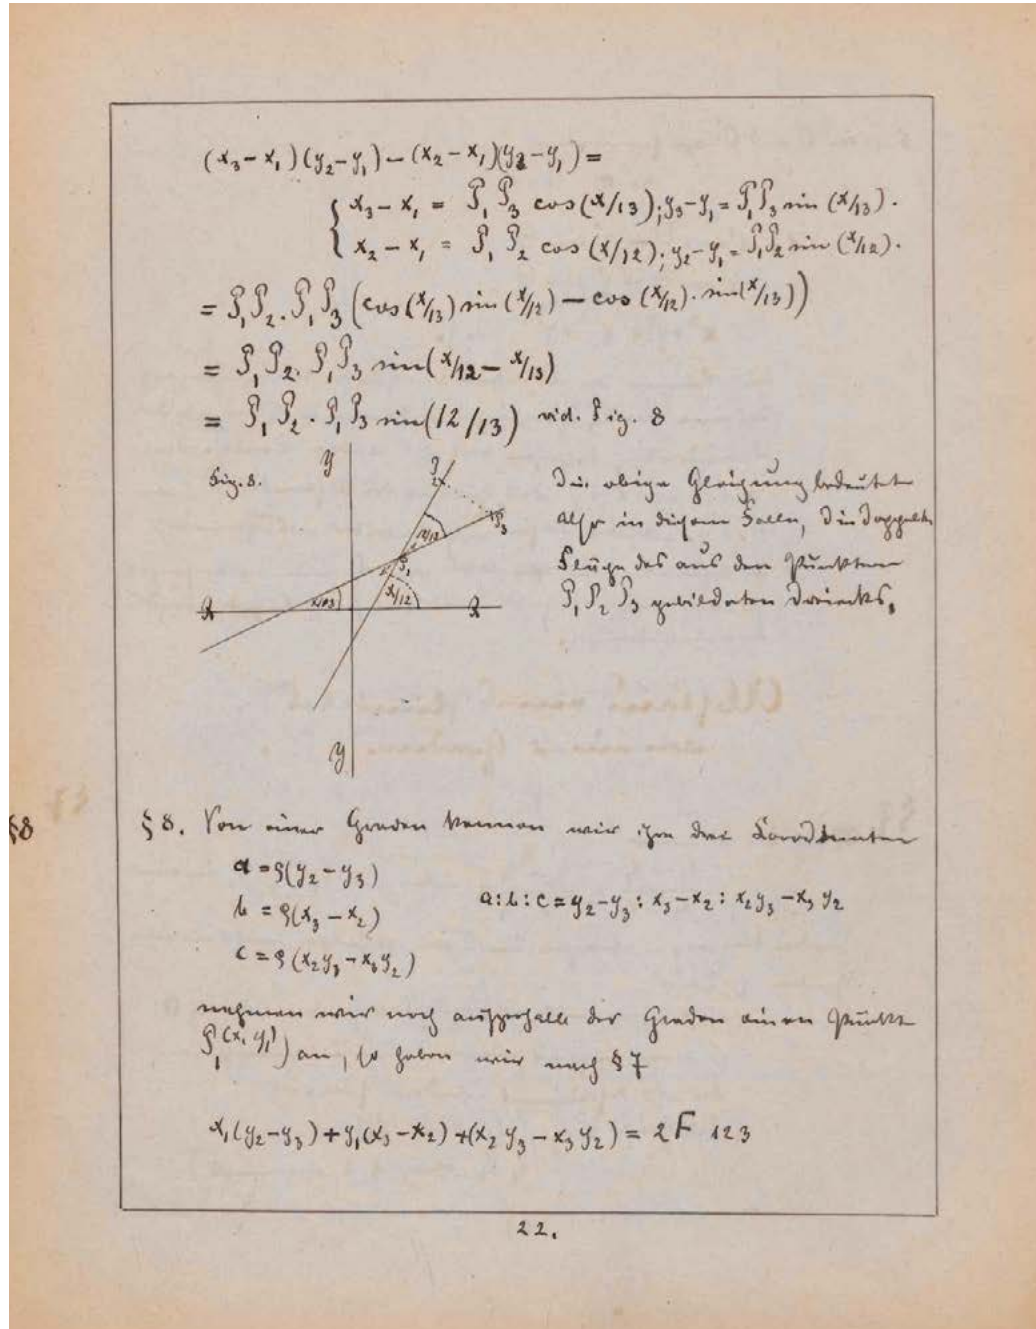 (x₃ − x₁)(y₂ − y₁) − (x₂ − x₁)(y₃ − y₁) =
{ x₃ − x₁ = P₁P₃ cos(x/13); y₃ − y₁ = P₁P₃ sin (x/13).
x₂ − x₁ = P₁P₂ cos(x/12); y₂ − y₁ = P₁P₂ sin (x/12).
= P₁P₂ . P₁P₃ (cos(x/13) sin(x/12) − cos(x/12) . sin(x/13))
= P₁P₂ . P₁P₃ sin(x/12 − x/13)
= P₁P₂ . P₁P₃ sin(12/13) vid. Fig. 8
Fig. 8.
Y
P₂
P₃
12/13
P₁
x/13
x/12
X
X
Y
Die obige Gleichung bedeutet
also in diesem Falle, die doppelte
Fläche des aus den Punkten
P₁ P₂ P₃ gebildeten Dreiecks,
§8
§ 8. Von einer Graden kennen wir ihre drei Coordinaten
a = ρ(y₂ − y₃)
b = ρ(x₃ − x₂)
a : b : c = y₂ − y₃ : x₃ − x₂ : x₂y₃ − x₃y₂
c = ρ(x₂y₃ − x₃y₂)
nehmen wir noch außerhalb der Graden einen Punkt
P₁(x₁ y₁) an, so haben wir nach § 7
x₁(y₂ − y₃) + y₁(x₃ − x₂) + (x₂y₃ − x₃y₂) = 2F 123
22.